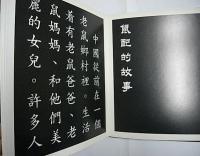 鼠記的故事
中國從前在一個
老鼠鄉村裡。生活
着有老鼠爸爸、老
鼠媽媽、和他們美
麗的女兒。許多人